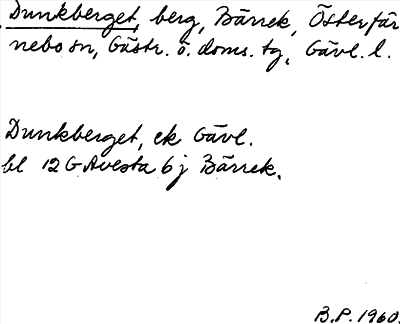 Dunkberget, berg, Bärrek, Österfär
nebo sn, Gästr. ö. doms. tg, Gävl. l.
Dunkberget, ek Gävl.
bl 12 G Avesta 6 j Bärrek.
B.P. 1960.